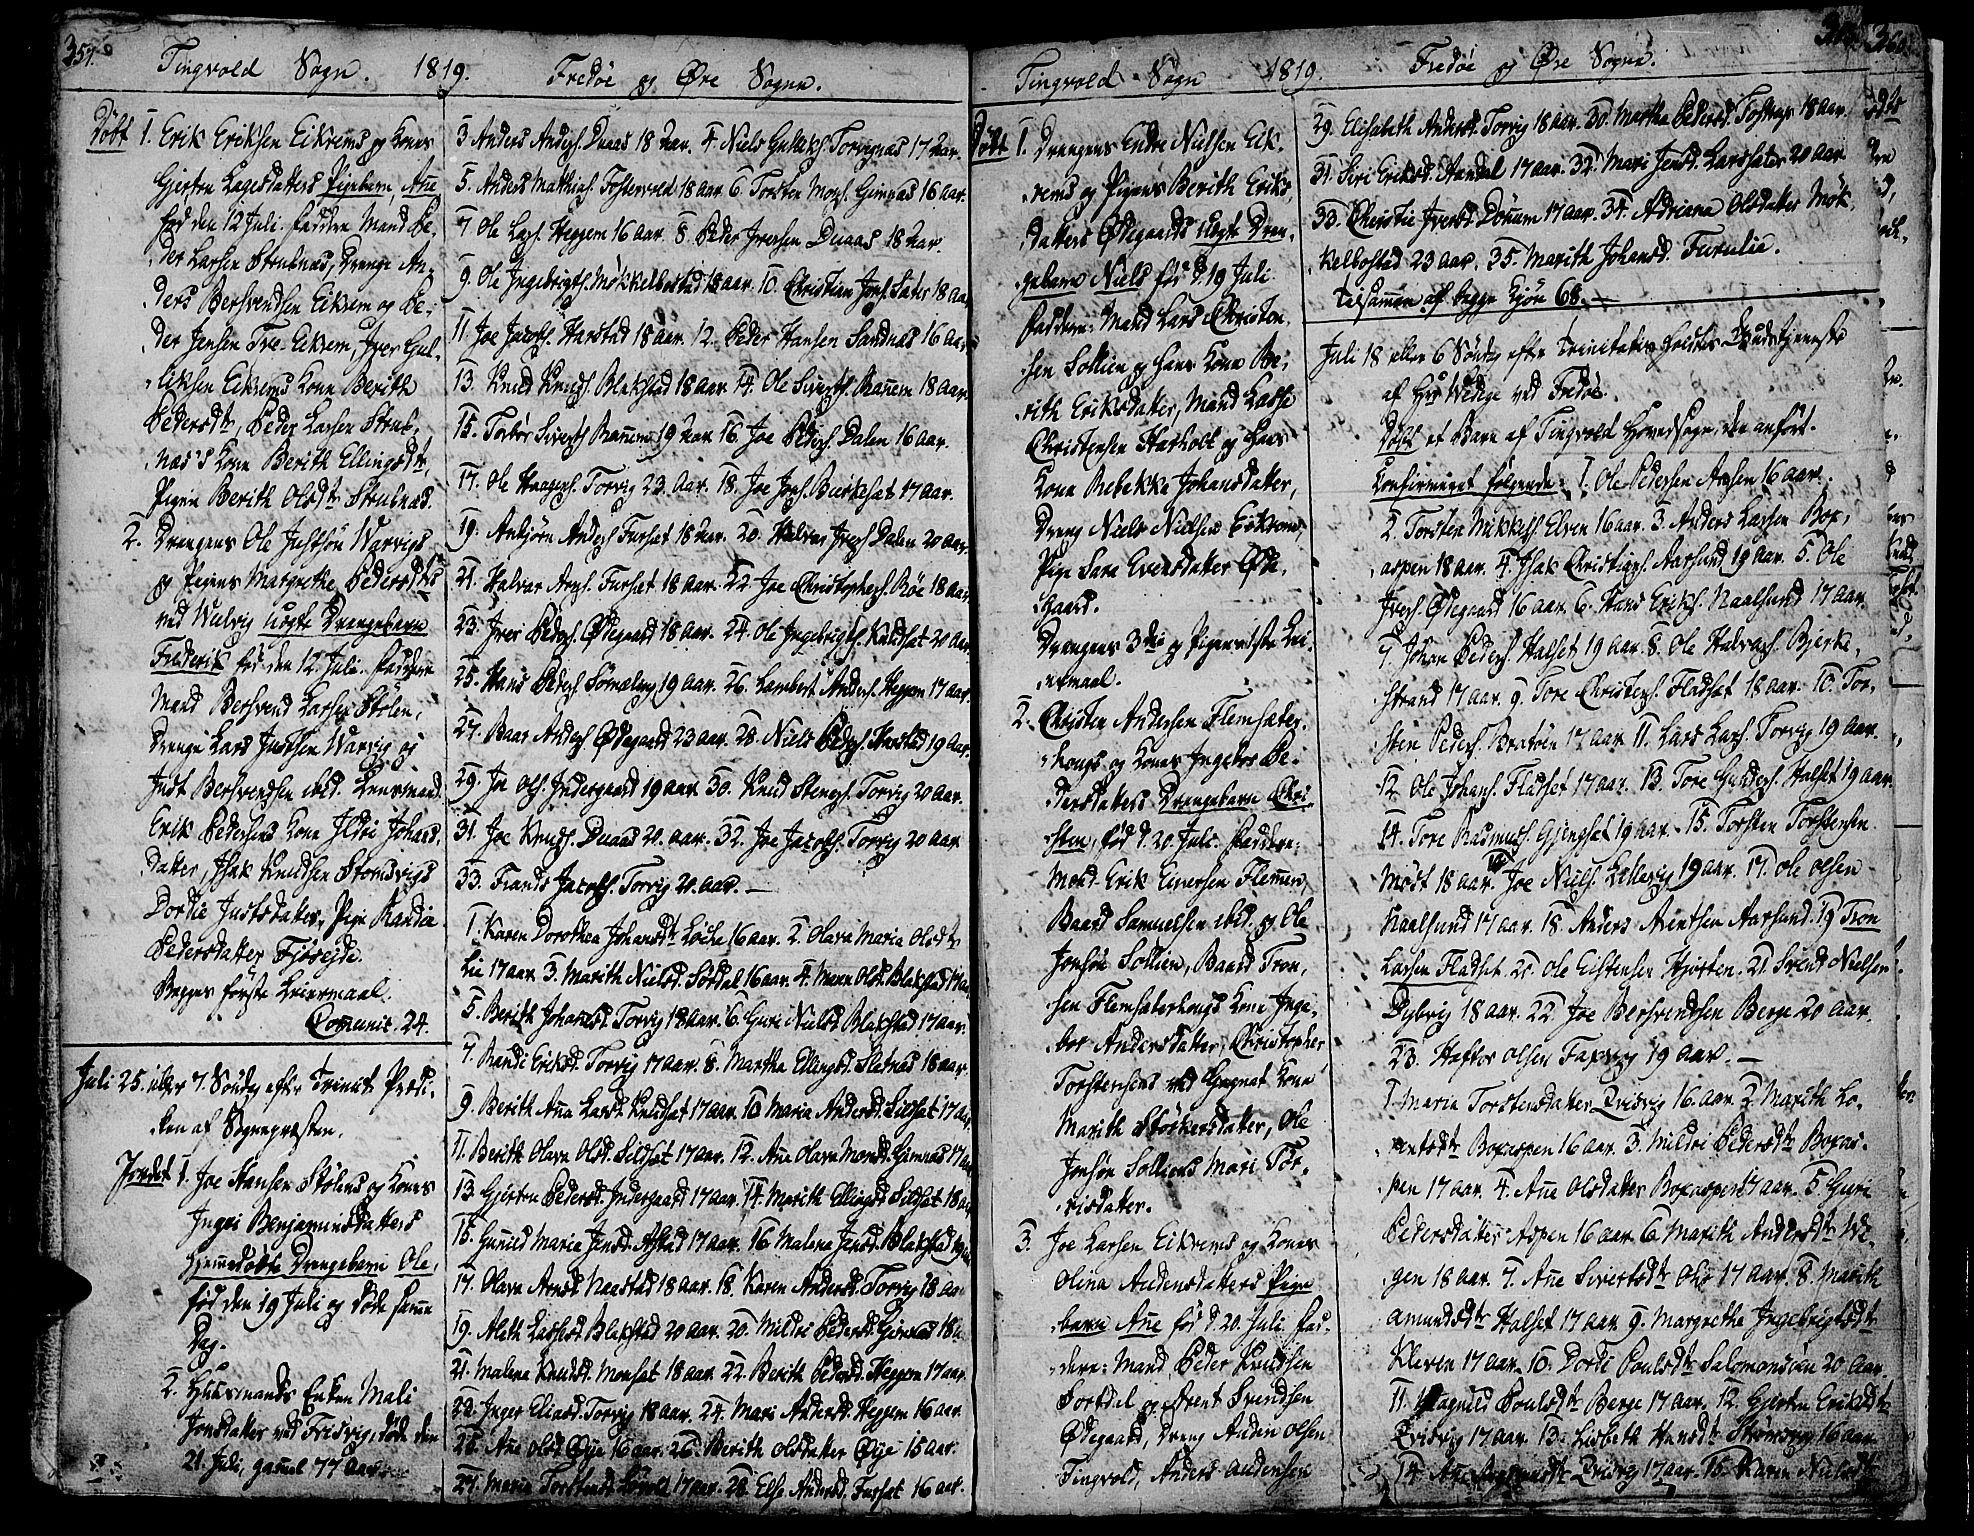 359.
Tingvold Sogn. 1819.
Fredøe og Øre Sogne.
Døbt 1. Erik Eriksen Eikrems og Kones
Gjertru Lagesdatters Pigebarn, Ane
født den 12 Juli. Faddere Mand Pe-
der Larsen Strubnæs, Drenge An-
ders Bersvendsen Eikrem og Pe-
der Jensen Eikrem, Iver Gul-
liksen Eikrems Kone Berith
Pedersdtr, Peder Larsen Strub-
næs's Kone Berith Ellingsdtr,
Pigen Berith Olsdtr Strubnæs.
2. Drengens Ole Justsøn Warvigs
og Pigens Margrethe Pedersdtrs
ved Wulvig uægte Drengebarn
Frederik fød den 12 Juli. Faddere
Mand Bersvend Larsen Stølen,
Drenge Lars Justsen Warvig og
Just Bersvendsen ibid. Lensmand
Erik Pedersens Kone Ildri Johans-
datter, Isak Knudsen Stromsvigs
Dordie Justsdatter, Pige Randie
Pedersdatter Fjøseide.
Begges første Leiermaal.
Comunic. 24.
Juli 25. eller 7. Søndag efter Trinit. Prædi-
ken af Sognepræsten.
Jordet 1. Joe Hansen Stølens og Kones
Ingri Benjaminsdatters
hjemmedøbte Drengebarn Ole,
fød den 19 Juli og døde samme
Dag.
2. Huusmands Enken Mali
Jonsdatter ved Fridvig, døde den
21. Juli, gamel 77 Aar.
3 Anders Anders. Duaas 18 Aar. 4 Niels Gullaks. Torvignæs 17 Aar.
5. Anders Mathias. Fostervold 18 Aar 6 Torsten Mogs. Gimnæs 16 Aar.
7 Ole Lars. Heggem 16 Aar 8. Peder Iversen Duaas 18 Aar.
9. Ole Ingebrigts. Møkkelbostad 18 Aar. 10. Christian Jons. Sæter 18 Aar
11. Joe Jacobs. Harstad 18 Aar. 12. Peder Hansen Sandnæs 16 Aar
13. Knud Knuds. Blakstad 18 Aar 14. Ole Siverts. Ranem 18 Aar
15. Torbør Siverts. Ranem 19 Aar 16. Joe Peders. Dalen 16 Aar.
17. Ole Haagens. Torvig 23. Aar. 18. Joe Jons. Birkeset 17 Aar.
19. Anbjørn Anders. Furset 18 Aar. 20. Halvar Ivers. Dalen 20 Aar.
21. Halvar Furset 18 Aar. 22 Joe Christophers. Røe 18 Aar
23. Iver Peders. Ødegaard 18 Aar. 24. Ole Ingebrigts. Kuldset 20 Aar
25. Hans Peders. 19 Aar. 26. Lambert Anders. Heggem 17 Aar.
27. Baar Anders. Ødegaard 23 Aar. 28. Niels Peders. Harstad 19 Aar.
29. Joe Ols. Indergaard 19 Aar. 30. Knud Torvig 20 Aar.
31. Joe Knuds. Duaas 20. Aar. 32. Joe Jacobs. Torvig 20 Aar
33. Frands Jacobs. Torvig 20. Aar.
1. Karen Dorothea Johansdtr 16 Aar. 2. Olava Maria Olsdtr
Lie 17 Aar 3. Marith Nielsd. Sørdal 16 Aar. 4. Maren Olsd. Blakstad 17 Aar
5. Berith Johansd. Torvig 18 Aar. 6. Guri Nielsd. Blakstad 17 Aar
7. Randi Eriksd. Torvig 17 Aar. 8. Martha Ellingsd. Sletnæs 18 Aar
9. Berith Ane Larsd. Knudset 17 Aar. 10 Maria Andersd. Sildset 17 Aar
11. Berith Olava Olsd. Sildset 17 Aar. 12. Ane Olava Gimnæs 17 Aar
13. Gjertru Pedersd. Indergaard 17 Aar 14. Marith Ellingsd. Sildset 18 Aar
15. Gunild Maria Jensd. 17 Aar. 16 Malena Jensd. Blakstad
17. Olava Arnsd. Naastad 18 Aar. 18. Karen Andersd. Torvig 18 Aar
19. Aleth Larsd. Blakstad 20 Aar. 20. Mildri Pedersd. Gimnæs 18
21. Malena Knudsd. Monset 18 Aar. 22. Berith Pedersd. Heggem 17 Aar.
23. Inger Eliasd. Torvig 18 Aar. 24. Mari Andersd. Heggem 16 Aar.
25. Ane Olsd. Øye 16 Aar. 26. Berith Olsdatter Øye 15 Aar.
27. Maria Torstensd. 17 Aar. 28. Else Andersd. Furset 16 Aar.
360
Tingvold Sogn 1819.
Fredøe og Øre Sogne.
Døbt 1. Drengens Endre Nielsen Eik-
rems og Pigens Berith Eriks-
datters Ødegaards uægte Dren-
gebarn Niels fød d. 19 Juli
Faddere: Mand Lars Christen-
sen Sollien og hans Kone Be-
rith Eriksdatter, Mand Lasse
Christensen Harholt og hans
Kone Rebekka Johansdatter,
Dreng Niels Nielsen Eikrem,
Pige Sara Evensdatter Øde-
gaard.
Drengens 3die og Pigens første Lei-
ermaal.
2. Christen Andersen Flemsæter-
houg og Kones Ingebor Pe-
dersdatters Drengebarn Chri-
sten, fød d. 20 Juli. Faddere:
Mand Erik Einersen Flemmen,
Baard Samuelsen ibid. og Ole
Jonsøn Sollien, Baard Tron-
sen Flemsæterhougs Kone Inge-
bor Andersdatter, Christopher
Torstensens ved Kone
Marith Størkersdatter, Ole
Jonsøn Solliens Mari Tor-
risdatter.
3. Joe Larsen Eikrems og Kones
Olina Audensdatters Pige-
barn Ane fød d. 20. Juli. Fad-
dere: Mand Peder Knudsen
og Arent Svendsen
Ødegaard, Dreng Auden Olsen
Tingvold, Anders Audensen
29. Elisabeth Andersd. Torvig 18 Aar. 30. Martha Pedersd. 18 Aar.
31. Siri Eriksd. Aandal 17 Aar. 32. Mari Jensd. Larssæter 20 Aar
33. Christie Iversd. Donnem 17 Aar. 34. Adriana Olsdatter Møk-
kelbostad 23 Aar. 35. Marith Johansd. Furulie.
Tilsammen af begge Kjøn 68.
Juli 18 eller 6 Søndag efter Trinitatis holdtes Gudstjeneste
af Hr Wedege ved Fredøe.
Døbt et Barn af Tingvold Hovedsogn, der anført.
Confirmeret følgende: 1. Ole Pedersen Aasen 16 Aar.
2. Torsten Mikkels. Elven 16 Aar. 3. Anders Larsen Box-
aspen 18 Aar. 4. Isak Christians. Aarsund 19 Aar. 5. Ole
Ivers. Ødegaard 16 Aar. 6. Hans Eriks. Naalsund 17 Aar.
7. Johan Peders. Halset 19 Aar. 8. Ole Halvars. Bjerke-
strand 17 Aar. 9. Tore Christens. Fladset 18 Aar. 10. Tor-
sten Peders. Bratøen 17 Aar. 11. Lars Lars. Torvig 19 Aar.
12. Ole Johans. Fladset 17 Aar. 13. Tore Halset 19 Aar
14. Tore Rasmuss. Gjengset 19 Aar. 15. Torsten Torstensen
Møst 18 Aar. 16. Joe Niels. 19 Aar. 17. Ole Olsen
Naalsund 17 Aar. 18. Anders Arentsen Aarsund. 19 Tron
Larsen Fladset. 20. Ole Eistensen Hjorten. 21. Svend Nielsen
Dybvig 18 Aar. 22 Joe Bersvendsen Berge 20 Aar.
23. Haftor Olsen 19 Aar.
1. Maria Torstensdatter Qvisvig 16. Aar. 2. Marith Lo-
rentsdtr Boxaspen 16 Aar. 3. Mildri Pedersdtr Boxas-
pen 17 Aar. 4. Ane Olsdatter Boxaspen 17 Aar. 5 Guri
Pedersdatter Aspen 16 Aar. 6. Marith Andersdtr We-
gen 18 Aar. 7. Ane Sivertsdtr 17 Aar. 8. Marith
Amundsdtr Halset 17 Aar. 9. Margrethe Ingebrigtsdtr
Kleven 17 Aar. 10. Dorde Poulsdtr Salomonsøen 20 Aar.
11. Magnild Poulsdtr Berge 17 Aar. 12. Gjertru Eriksdtr
Qvisvig 17 Aar. 13. Lisbeth Hansdtr 16 Aar
14. Ane Qvisvig 17 Aar. 15. Karen Nielsdtr